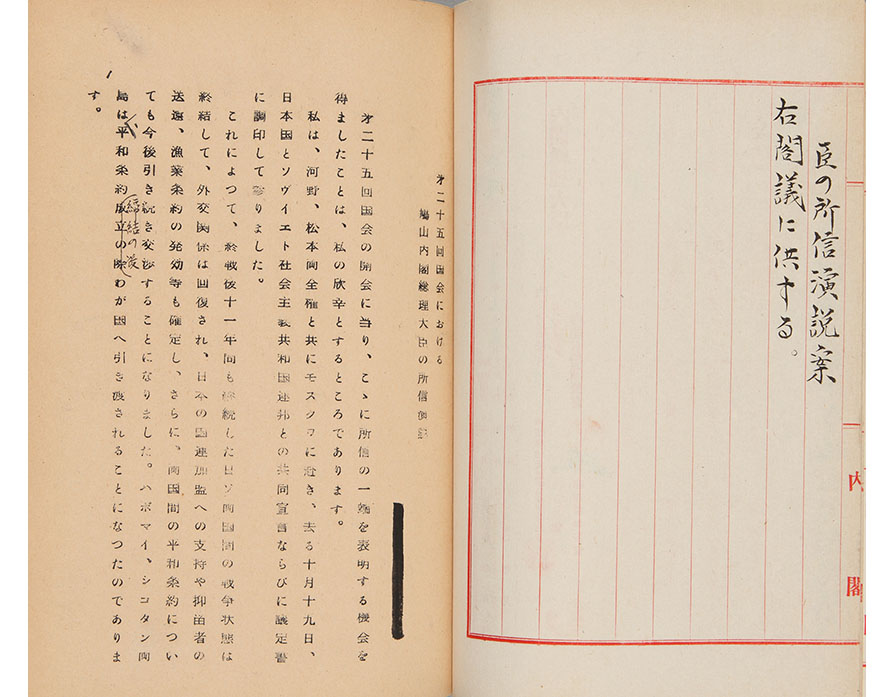 内閣
臣の所信演説案
右閣議に供する。
才二十五回国会における
鳩山内閣総理大臣の所信演説
才二十五回国会の開会に当り、こゝに所信の一端を表明する機会を
得ましたことは、私の欣幸とするところであります。
私は、河野、松本両全権と共にモスクワに赴き、去る十月十九日、
日本国とソヴイエト社会主義共和国連邦との共同宣言ならびに議定書
に調印して参りました。
これによつて、終戦後十一年間も継続した日ソ両国間の戦争状態は
終結して、外交関係は回復され、日本の国連加盟への支持や抑留者の
送還、漁業条約の発効等も確定し、さらに、両国間の平和条約につい
ても今後引き続き交渉することになりました。ハボマイ、シコタン両
締結の後
島は平和条約成立の際わが国へ引き渡されることになつたのでありま
す。